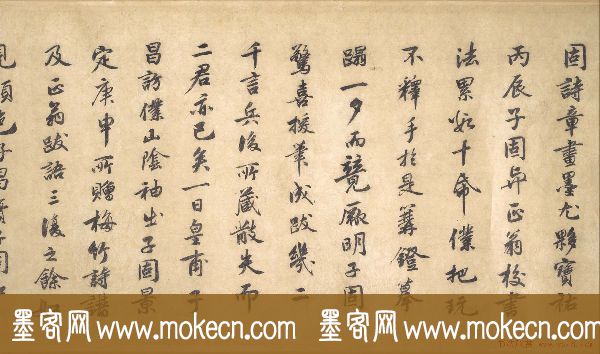 固詩章畫墨尤夥寶祐
丙辰子固與正翁校書
法累數十帋僕把玩
不釋手於是篝鐙摹
蹋一夕而竟厥明子固
驚喜援筆成跋幾二
千言兵後所藏散失而
二君亦已矣一日皇甫子
昌訪僕山陰袖出子固景
定庚申所贈梅竹詩譜
及正翁跋語三復之餘
子昌寶子固
墨客网 www.mokecn.com 墨客网 www.mokecn.com